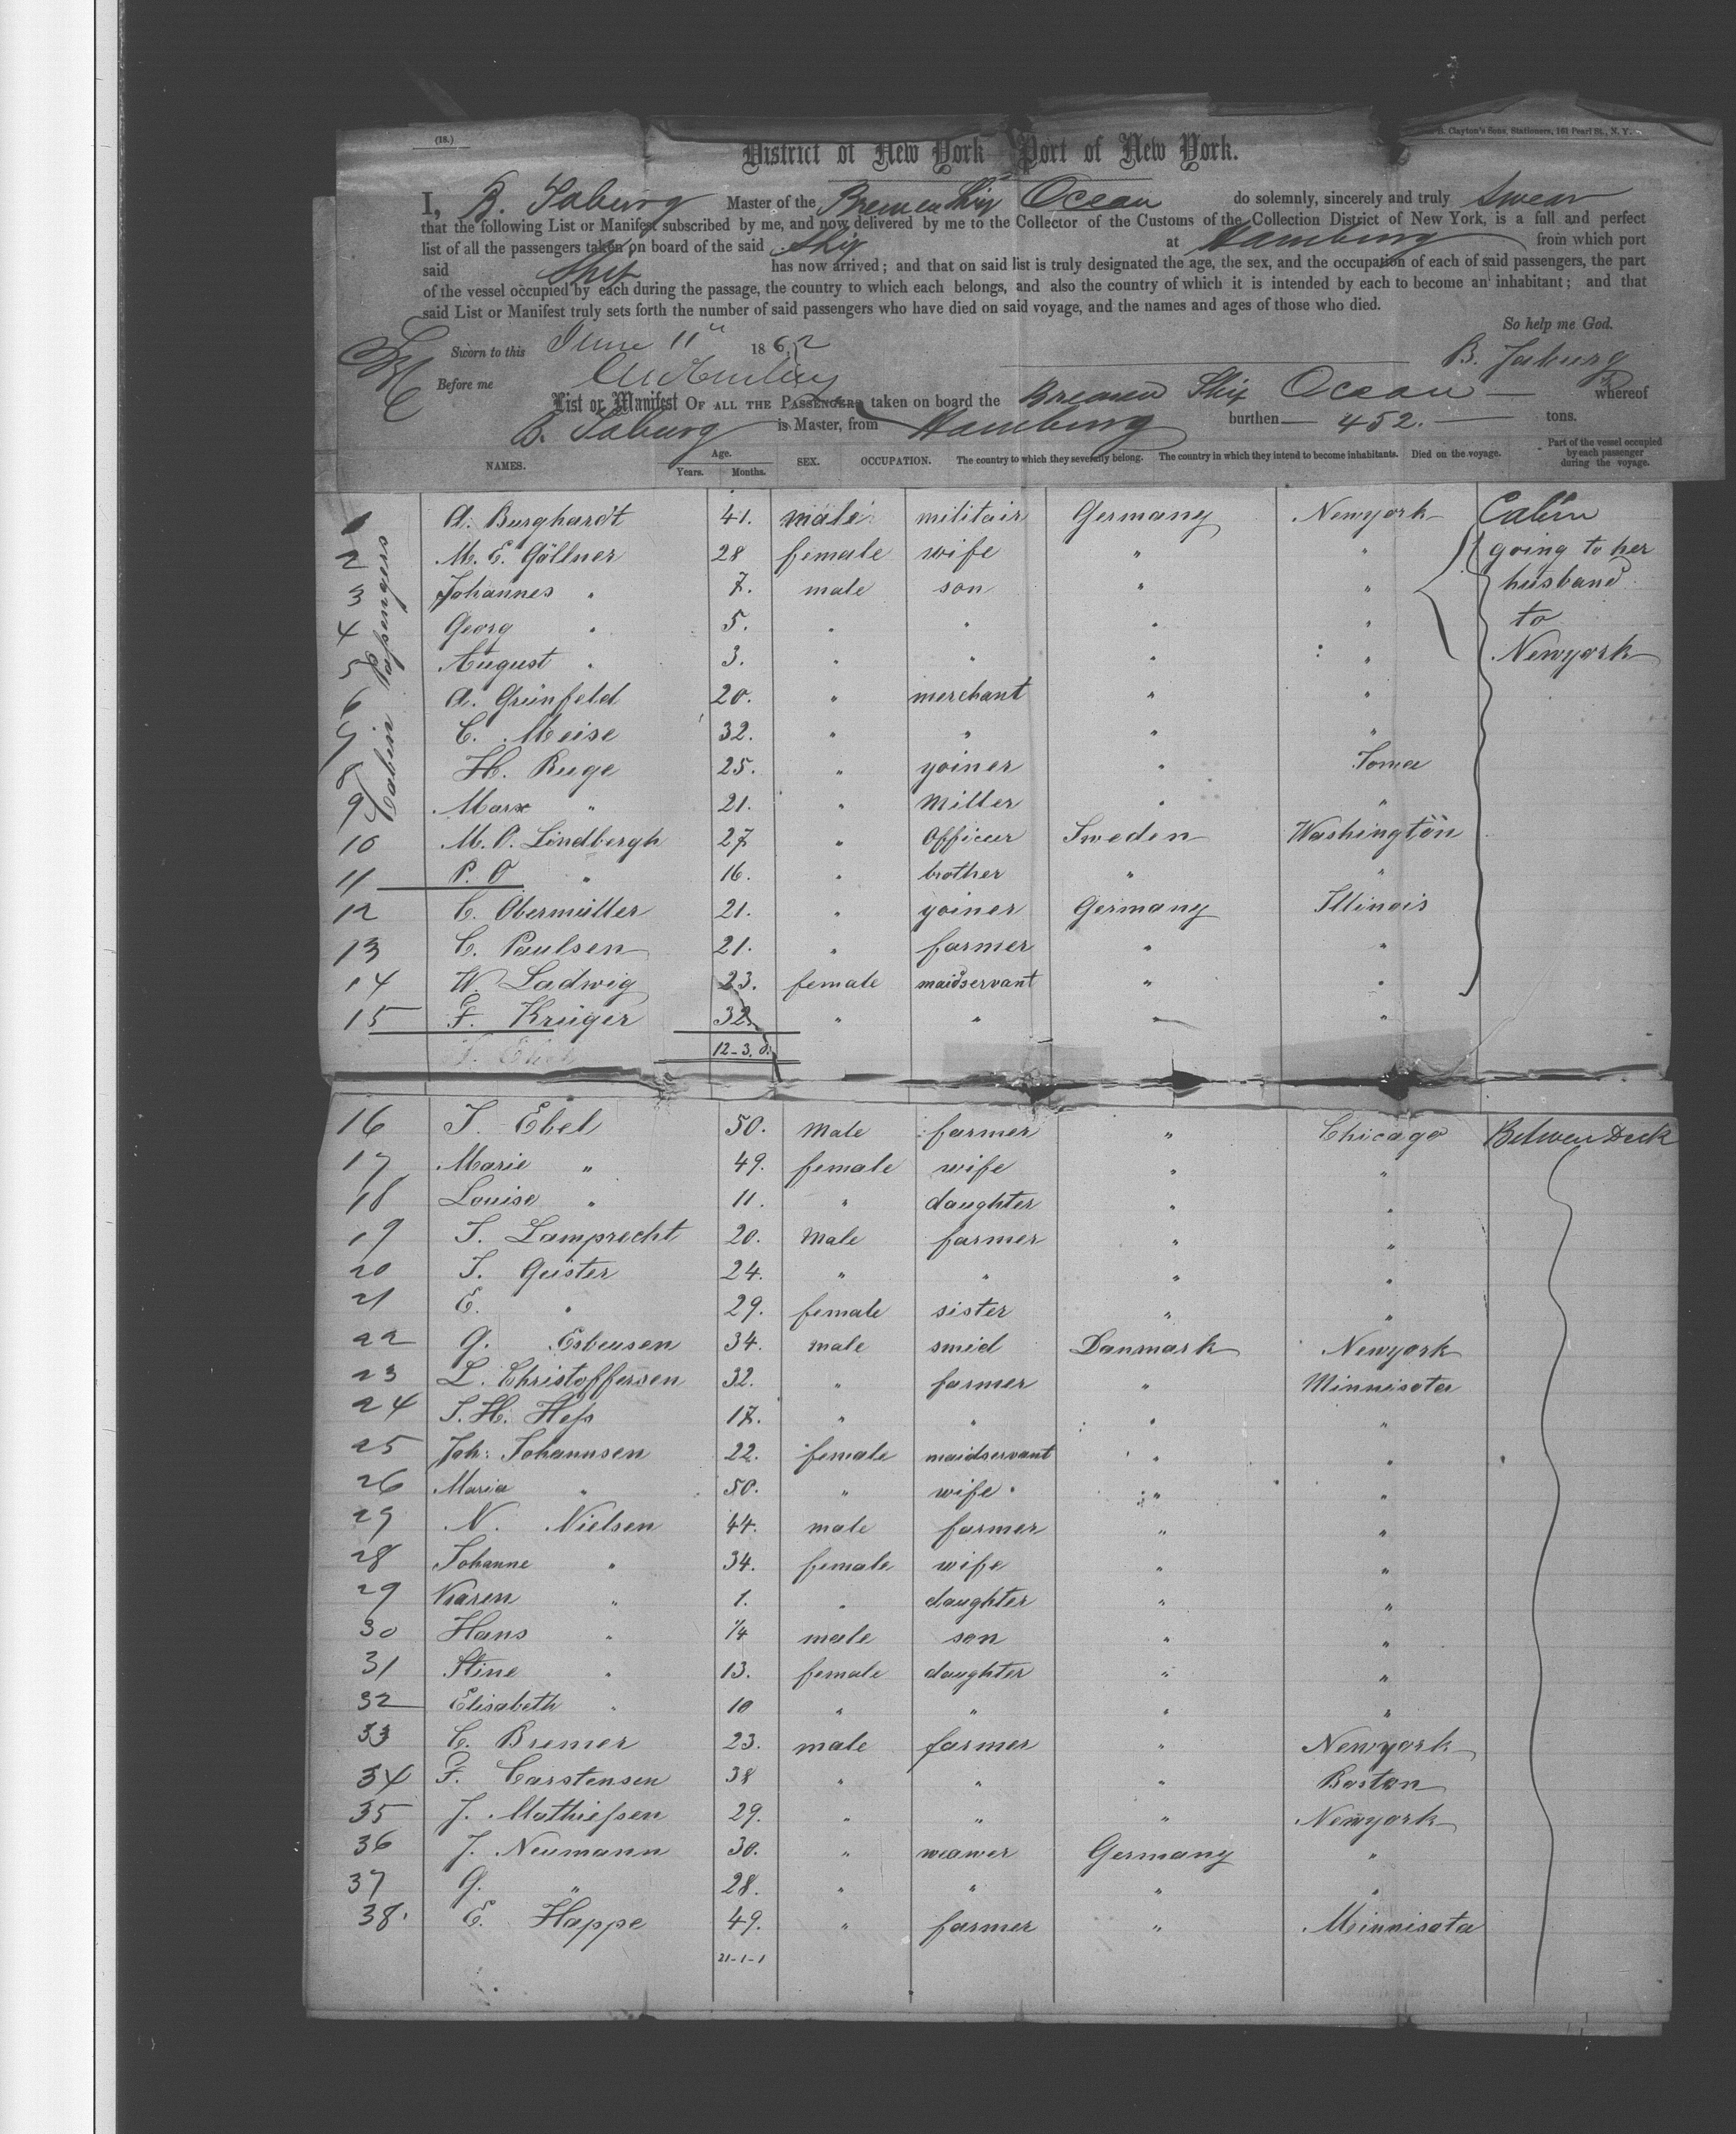 (18.)
B. Clayton's Sons, Stationers, 161 Pearl St., N. Y.
District of New York Port of New York.
I, B. Jaburg Master of the Bremen Ship Ocean do solemnly, sincerely and truly swear
that the following List or Manifest subscribed by me, and now delivered by me to the Collector of the Customs of the Collection District of New York, is a full and perfect
list of all the passengers taken on board of the said Ship at Hamburg from which port
said Ship has now arrived; and that on said list is truly designated the age, the sex, and the occupation of each of said passengers, the part
of the vessel occupied by each during the passage, the country to which each belongs, and also the country of which it is intended by each to become an inhabitant; and that
said List or Manifest truly sets forth the number of said passengers who have died on said voyage, and the names and ages of those who died.
So help me God.
Sworn to this June 11" 1862 B. Jaburg
Before me
List or Manifest OF ALL THE PASSENGERS taken on board the Bremen Ship Ocean whereof
B. Jaburg is Master, from Hamburg burthen 452. tons.
NAMES. Age. Years. Months. SEX. OCCUPATION. The country to which they severally belong. The country in which they intend to become inhabitants. Died on the voyage. Part of the vessel occupied by each passenger during the voyage.
Cabin Passengers
1 A. Burghardt 41. male militair Germany Newyork Cabin
2 M. E. Göllner 28 female wife " " going to her
3 Johannes " 7. male son " " husband
4 Georg " 5. " " " " to
5 August " 3. " " " " Newyork
6 A. Grünfeld 20. " merchant " "
7 C. Meise 32. " " " "
8 H. Ruge 25. " yoiner " Iowa
9 Marx " 21. " Miller " "
10 M. O. Lindbergh 27 " Officer Sweden Washington
11 P. O " 16. " brother " "
12 C. Obermüller 21. " yoiner Germany Illinois
13 C. Paulsen 21. " farmer " "
14 W. Ladwig 23. female maidservant " "
15 F. Krüger 32. " " " "
12-3.
16 J. Ebel 50. Male farmer " Chicago Between Deck
17 Marie " 49. female wife " "
18 Louise " 11. " daughter " "
19 J. Lamprecht 20. Male farmer " "
20 J. Geister 24. " " " "
21 E. " 29. female sister " "
22 G. Esbensen 34. male smid Danmark Newyork
23 L. Christoffersen 32. " farmer " Minnisota
24 J. H. Heſs 17. " " " "
25 Joh: Johannsen 22. female maidservant " "
26 Maria " 50. " wife " "
27 N. Nielsen 44. male farmer " "
28 Johanne " 34. female wife " "
29 Karen " 1. " daughter " "
30 Hans " 1/4 male son " "
31 Stine " 13. female daughter " "
32 Elisabeth " 10 " " " "
33 C. Bremer 23. male farmer " Newyork
34 F. Carstensen 38 " " " Boston
35 J. Mathieſsen 29. " " " Newyork
36 J. Neumann 30. " weawer Germany "
37 G. " 28. " " " "
38. E. Happe 49. " farmer " Minnisota
21-1-1